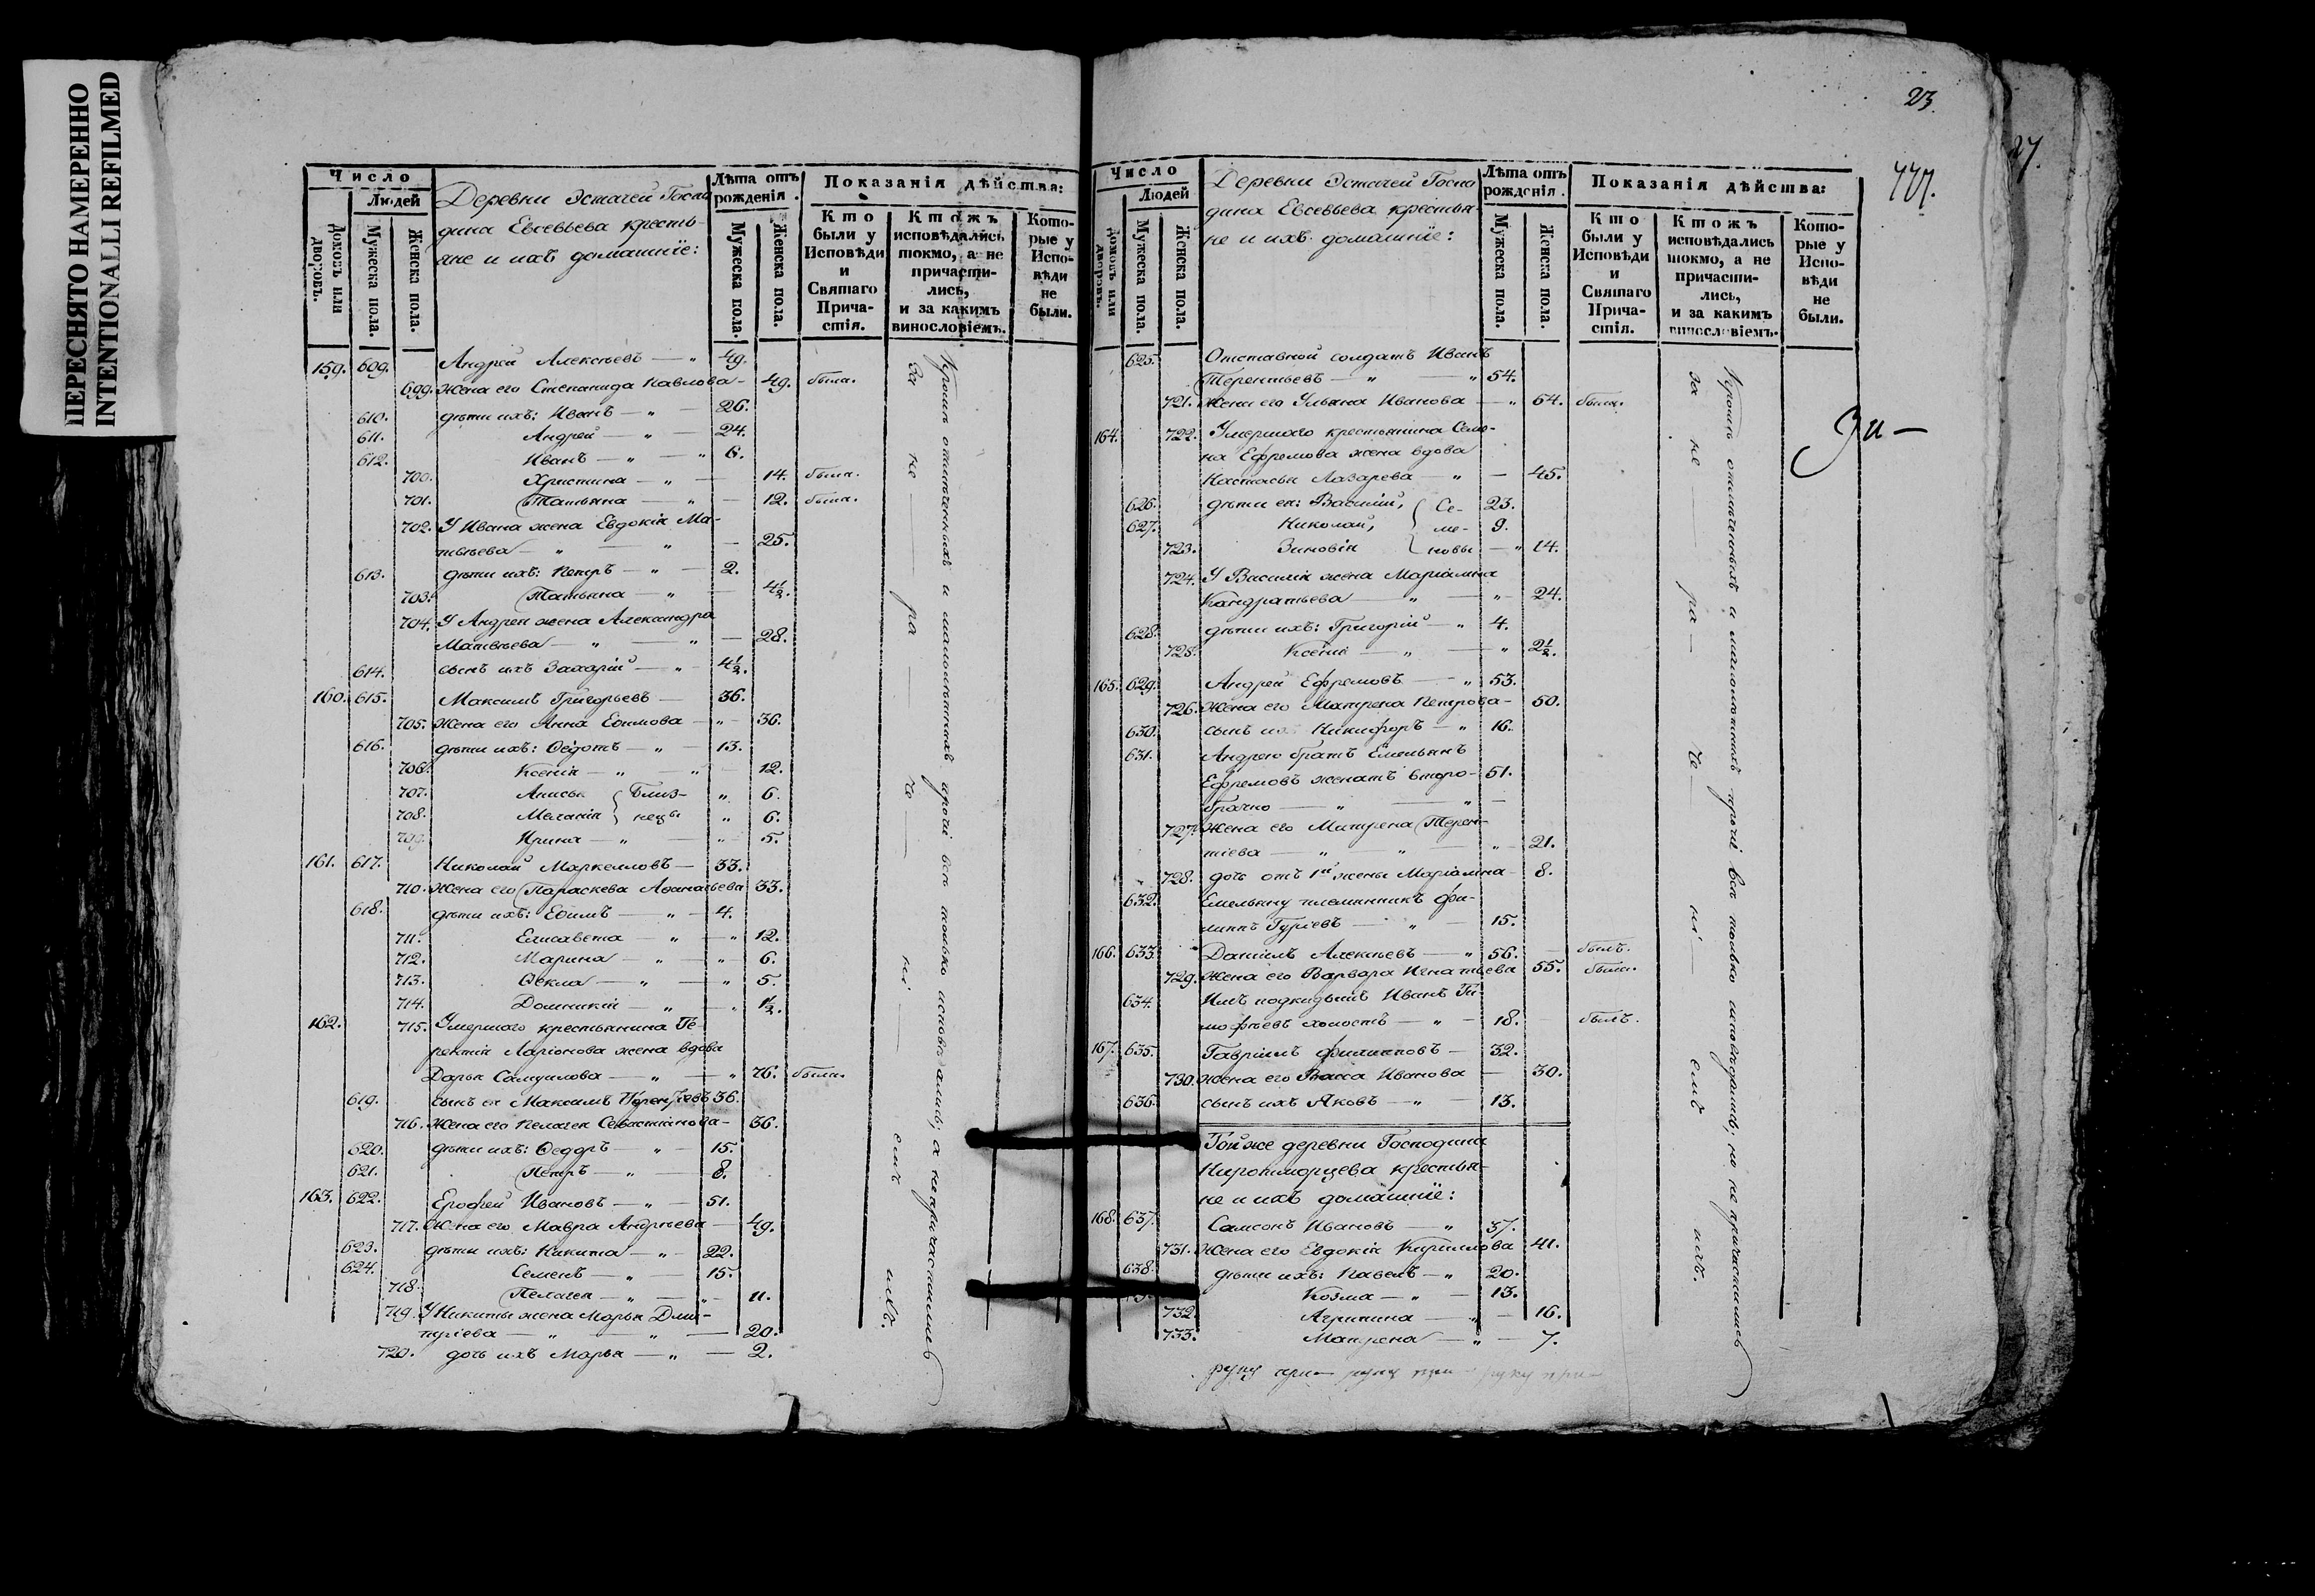 ПЕРЕСНЯТО НАМЕРЕННО
INTENTIONALLI REFILMED
Число
Людей
Домовъ или дворовъ.
Мужеска пола.
Женска пола.
Деревни Эстачей Госпо
дина Евсевьева кресть-
яне и ихъ домашніе:
Лѣта отъ рожденія.
Мужеска пола.
Женска пола.
Показанія дѣйства:
Кто были у Исповѣди и Святаго Прича- стія.
Ктожъ исповѣдались токмо, а не причасти- лись, и за какимъ винословіемъ.
Кото- рые у Испо- вѣди не были.
159. 609. Андрей Алексѣевъ — „ 49.
699. Жена его Степанида Павлова - 49. была.
610. дѣти ихъ: Иванъ — „ — 26.
611. Андрей — „ — 24.
612. Иванъ — „ — „ 6.
700. Христина — „ — 14. была.
701. Татьяна — „ — 12. была.
702. У Ивана жена Евдокія Ма-
твѣева — „ — „ — 25.
613. дѣти ихъ: Петръ — „ — 2.
703. Татьяна — „ — 4½.
704. У Андрея жена Александра
Матвѣева — „ — „ — 28.
614. сынъ ихъ Захарій — „ — 4½.
160. 615. Максимъ Григорьевъ — 36.
705. Жена его Анна Ефимова — „ — 36.
616. дѣти ихъ: Ѳедотъ — „ — 13.
706. Ксенія — „ — „ — 12.
707. Анисья { Близ- „ 6.
708. Меланія } нецы „ 6.
709. Ирина — „ — „ 5.
161. 617. Николай Маркелловъ — 33.
710. Жена его Параскева Аѳанасьева 33.
618. дѣти ихъ: Ефимъ — „ — 4.
711. Елисавета — „ — „ 12.
712. Марина — „ — „ 6.
713. Ѳекла — „ — „ 5.
714. Домникія — „ — „ 1½.
162. 715. Умершаго крестьянина Те-
рентія Ларіонова жена вдова
Дарья Самуилова — „ — „ 76. была.
619. сынъ ея Максимъ Терентьевъ 36.
716. Жена его Пелагея Севастіанова - 36.
620. дѣти ихъ: Ѳедоръ — „ — 15.
621. Петръ — „ — 8.
163. 622. Ерофей Ивановъ — „ — 51.
717. Жена его Мавра Андреева — 49.
623. дѣти ихъ: Никита — „ — 22.
624. Семенъ — „ — 15.
718. Пелагея — „ — „ — 11.
719. У Никиты жена Марья Дми-
тріева — „ — „ — 20.
720. дочь ихъ Марья — „ — 2.
Кромѣ отмѣченныхъ и малолѣтнихъ прочіе всѣ только исповѣдались, а не причастились
За не — ра — че — ні — емъ ихъ.
23.
27.
Число
Людей
Домовъ или дворовъ.
Мужеска пола.
Женска пола.
Деревни Эстачей Госпо
дина Евсевьева крестья-
не и ихъ домашніе:
Лѣта отъ рожденія.
Мужеска пола.
Женска пола.
Показанія дѣйства:
Кто были у Исповѣди и Святаго Прича- стія.
Ктожъ исповѣдались токмо, а не причасти- лись, и за какимъ винословіемъ.
Кото- рые у Испо- вѣди не были.
625. Отставной солдатъ Иванъ
Терентьевъ — „ — „ 54.
721. Жена его Ульяна Иванова — „ 64. была.
164. 722. Умершаго крестьянина Семе-
на Ефремова жена вдова
Настасья Лазарева — „ — 45.
626. дѣти ея: Василій, { Се- 23.
627. Николай, { ме- 9.
723. Зиновія { новы — „ 14.
724. У Василія жена Маріамна
Кандратьева — „ — „ 24.
628. дѣти ихъ: Григорій — „ 4.
725. Ксенія — „ — „ 2½.
165. 629. Андрей Ефремовъ — „ 53.
726. Жена его Матрена Петрова — 50.
630. сынъ ихъ Никифоръ — „ 16.
631. Андрею братъ Емельянъ
Ефремовъ женатъ второ- 51.
брачно — „ — „ —
727. Жена его Матрена Терен-
тіева — „ — „ — „ 21.
728. дочь отъ 1й жены Маріамна — 8.
632. Емельяну племянникъ Фи-
липпъ Гуріевъ — „ — 15.
166. 633. Даніилъ Алексѣевъ — „ 56. былъ.
729. Жена его Варвара Игнатьева 55. была.
634. Имъ подкидышъ Иванъ Ти-
мофѣевъ холостъ — „ — 18. былъ.
167. 635. Гавріилъ Филипповъ — 32.
730. Жена его Васса Иванова — 30.
636. сынъ ихъ Яковъ — „ — 13.
Той же деревни Господина
крестья-
не и ихъ домашніе:
168. 637. Самсонъ Ивановъ — „ 37.
731. Жена его Евдокія Кириллова 41.
638. дѣти ихъ: Павелъ — „ 20.
Козма — „ — 13.
732. Агрипина — „ — 16.
733. Матрена — „ — 7.
Кромѣ отмѣченныхъ и малолѣтнихъ прочіе всѣ только исповѣдались, но не причастились
За не — ра — че — ні — емъ ихъ.
руку при— руку при— руку при—